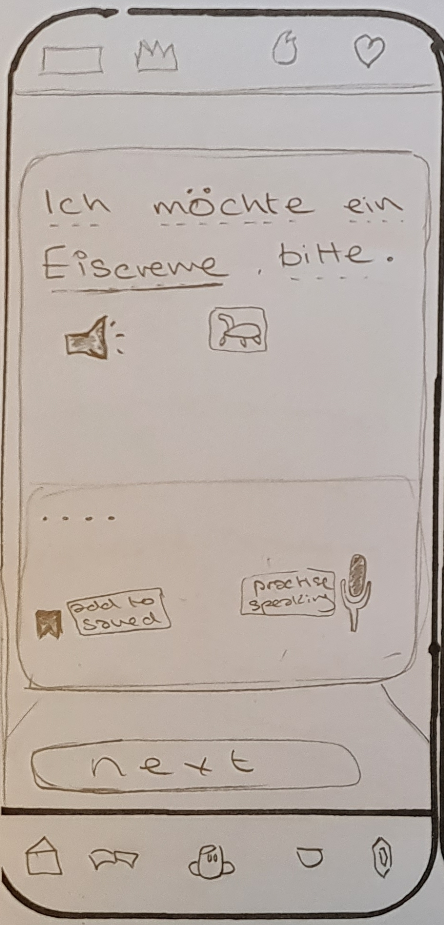 Ich möchte ein
Eiscreme, bitte.
....
add to
saved
practise
speaking
next